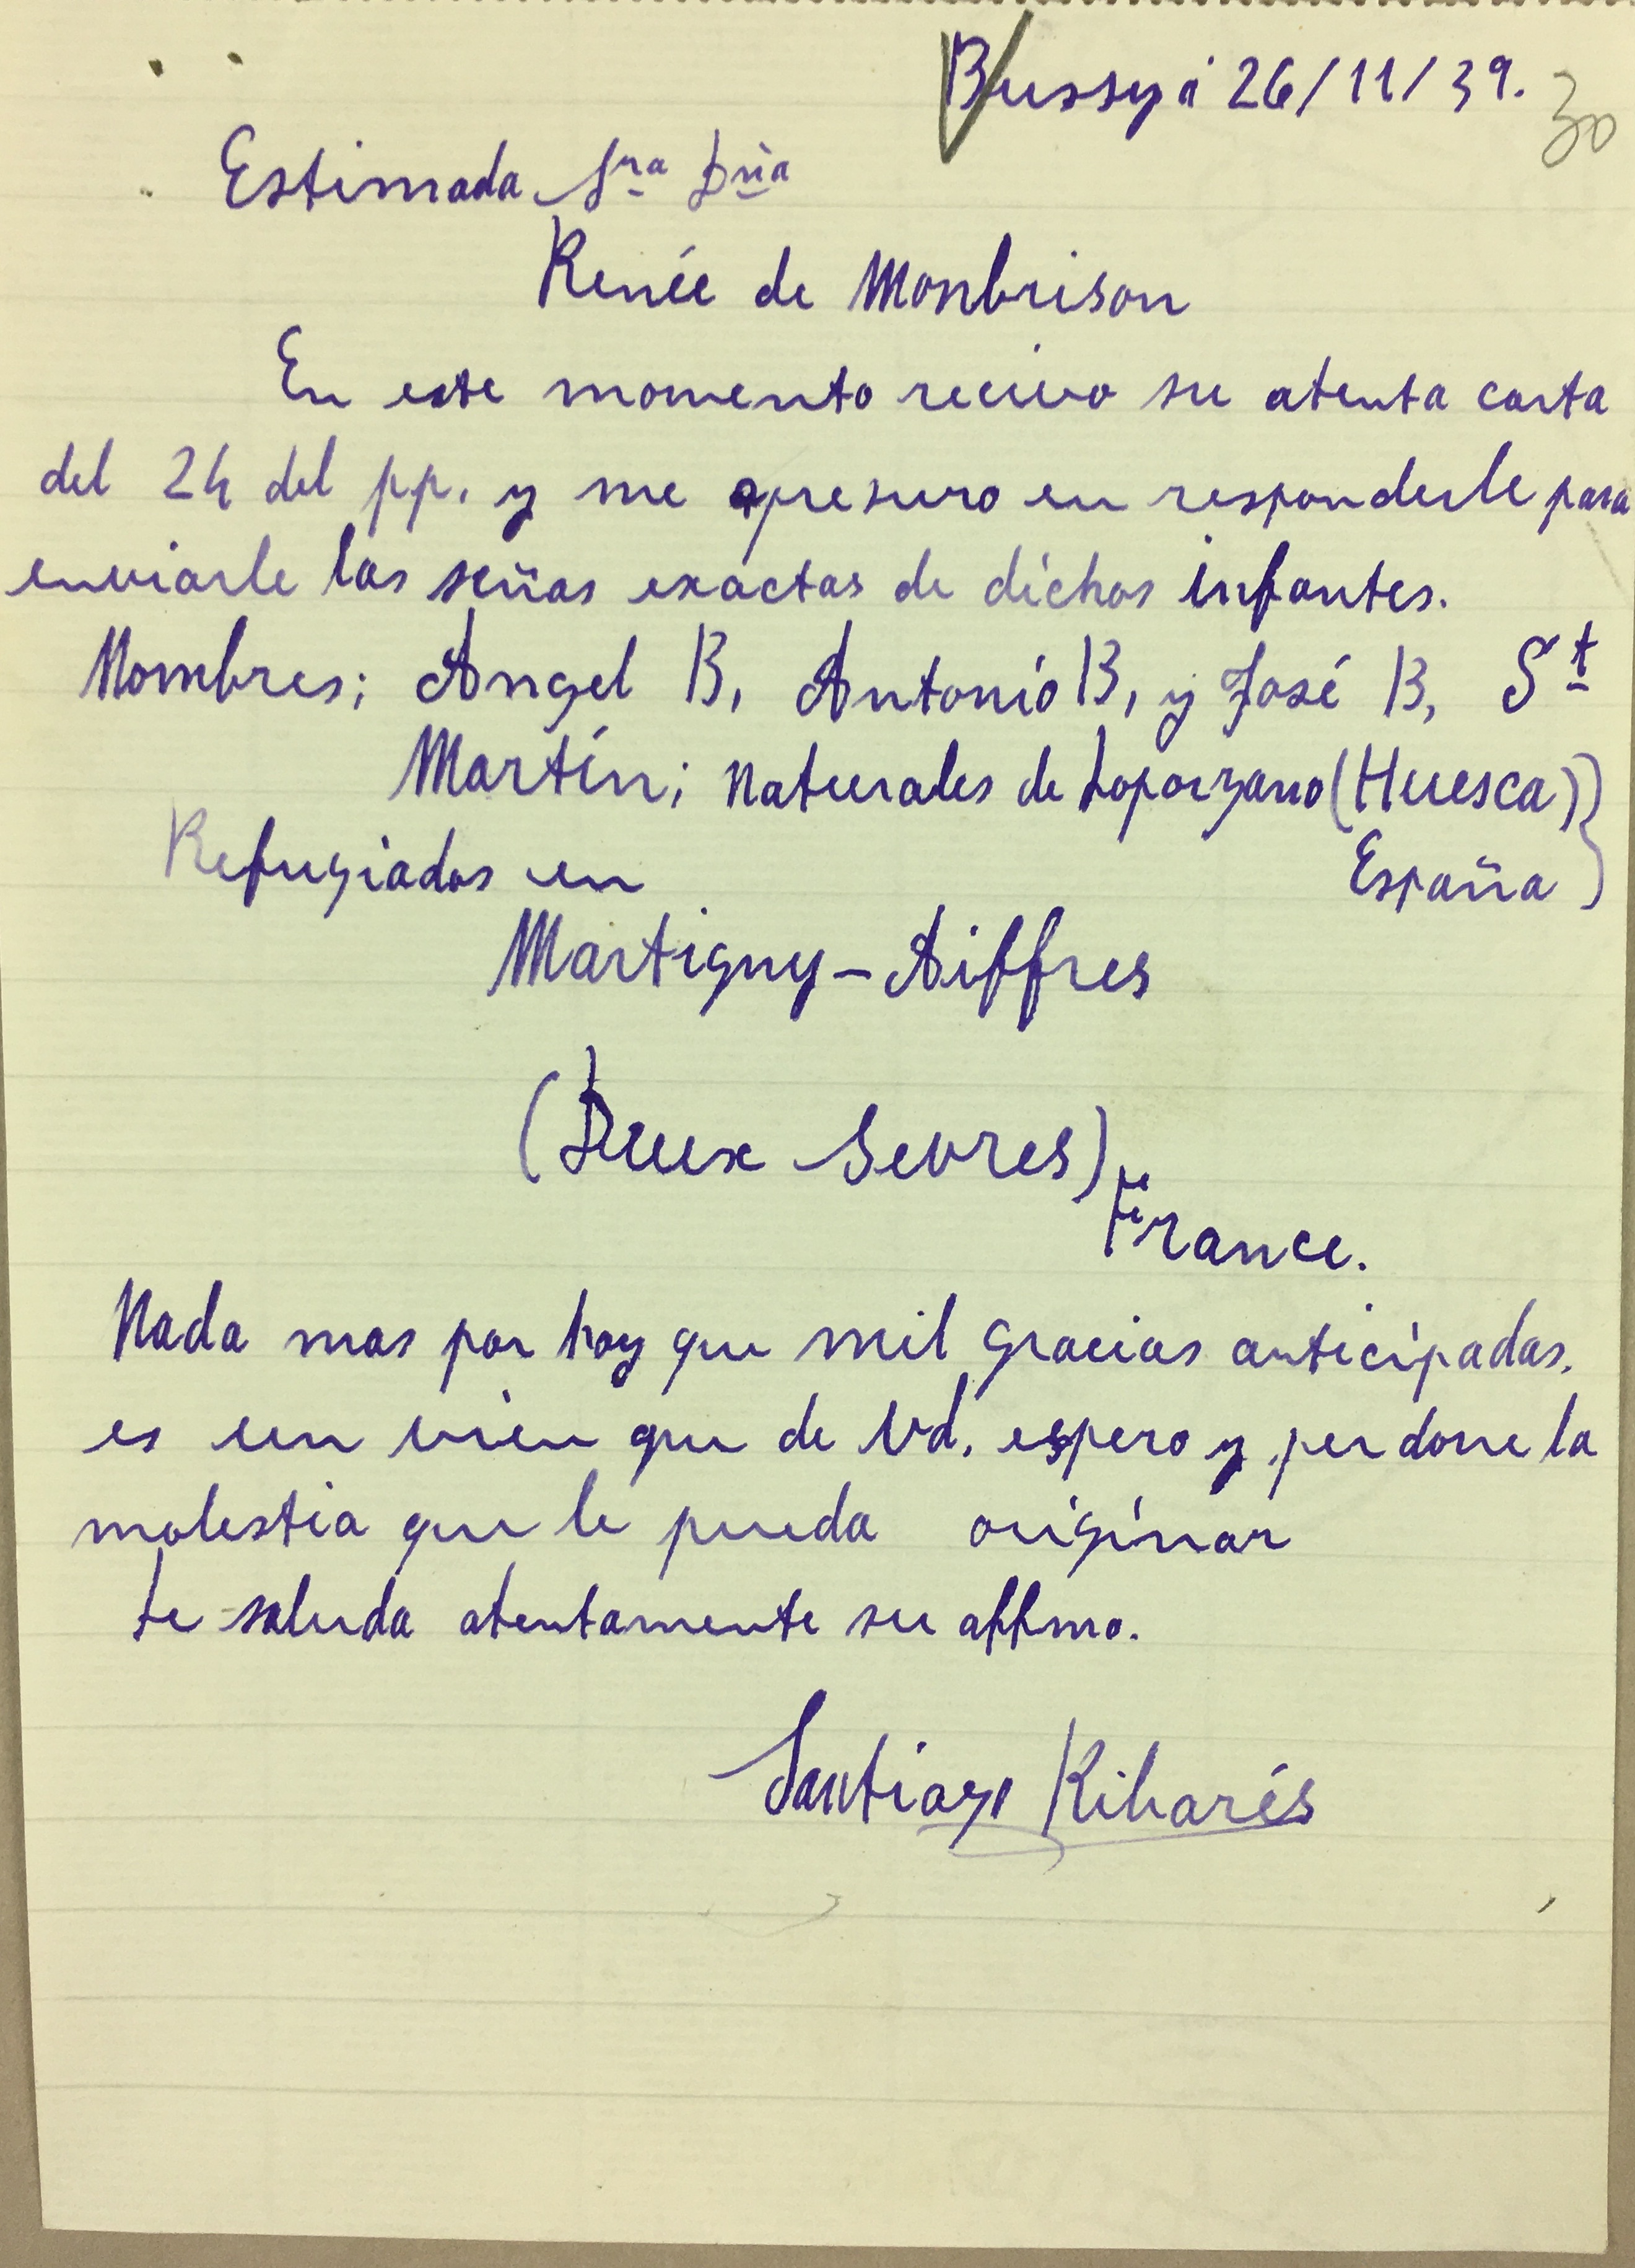 Bussy á 26/11/39.
30
Estimada Sra Dña
Renée de Monbrison
En este momento recivo su atenta carta
del 24 del pp. y me apresuro en responderle para
enviarle las señas exactas de dichos infantes.
Nombres; Angel B, Antonio B, y José B, St
Martín; Naturales de Loporzano (Huesca)
España
Refugiados en
Martigny - Aiffres
(Deux Sevres)
France.
Nada mas por hoy que mil gracias anticipadas.
es un vien que de Vd. espero y perdone la
molestia que le pueda originar
le saluda atentamente su affmo.
Santiago Ribarés